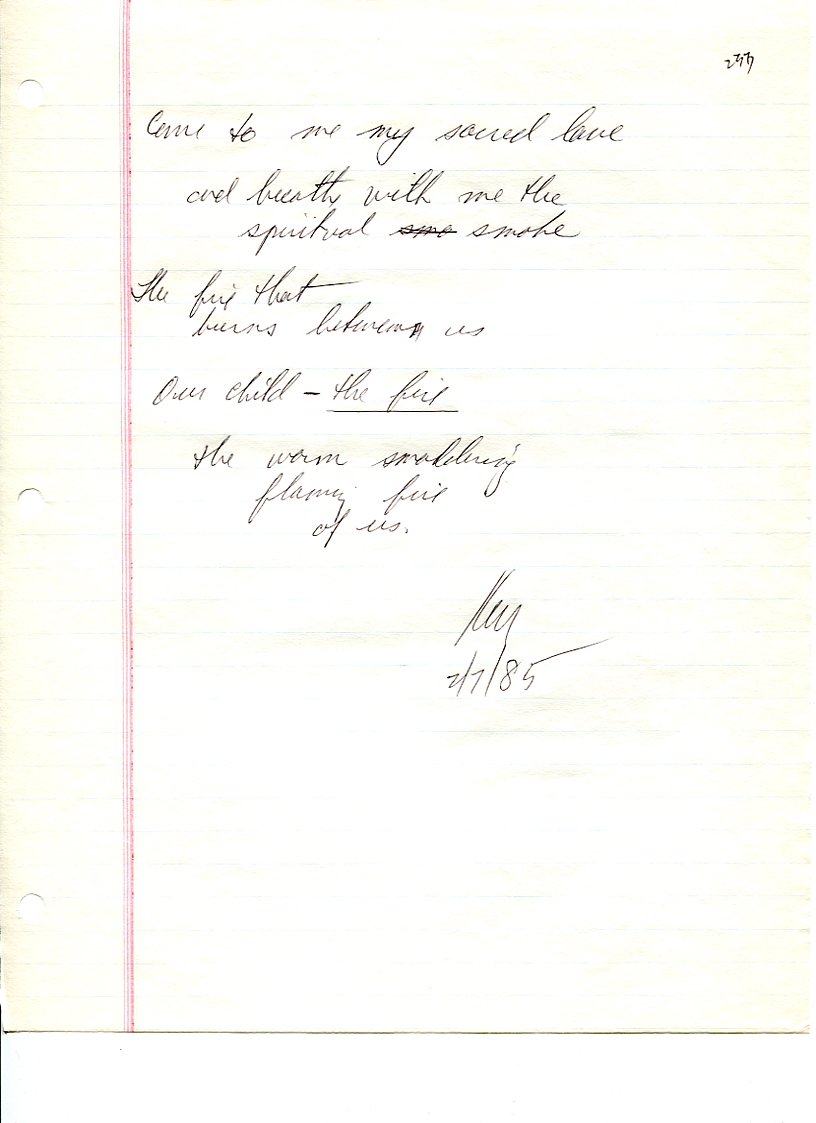 Come to me my sacred love
and breath with me the
spiritual smo smoke
The fire that
burns between us
Our child – the fire
the warm smoldering
flaming fire
of us.
2/7/85